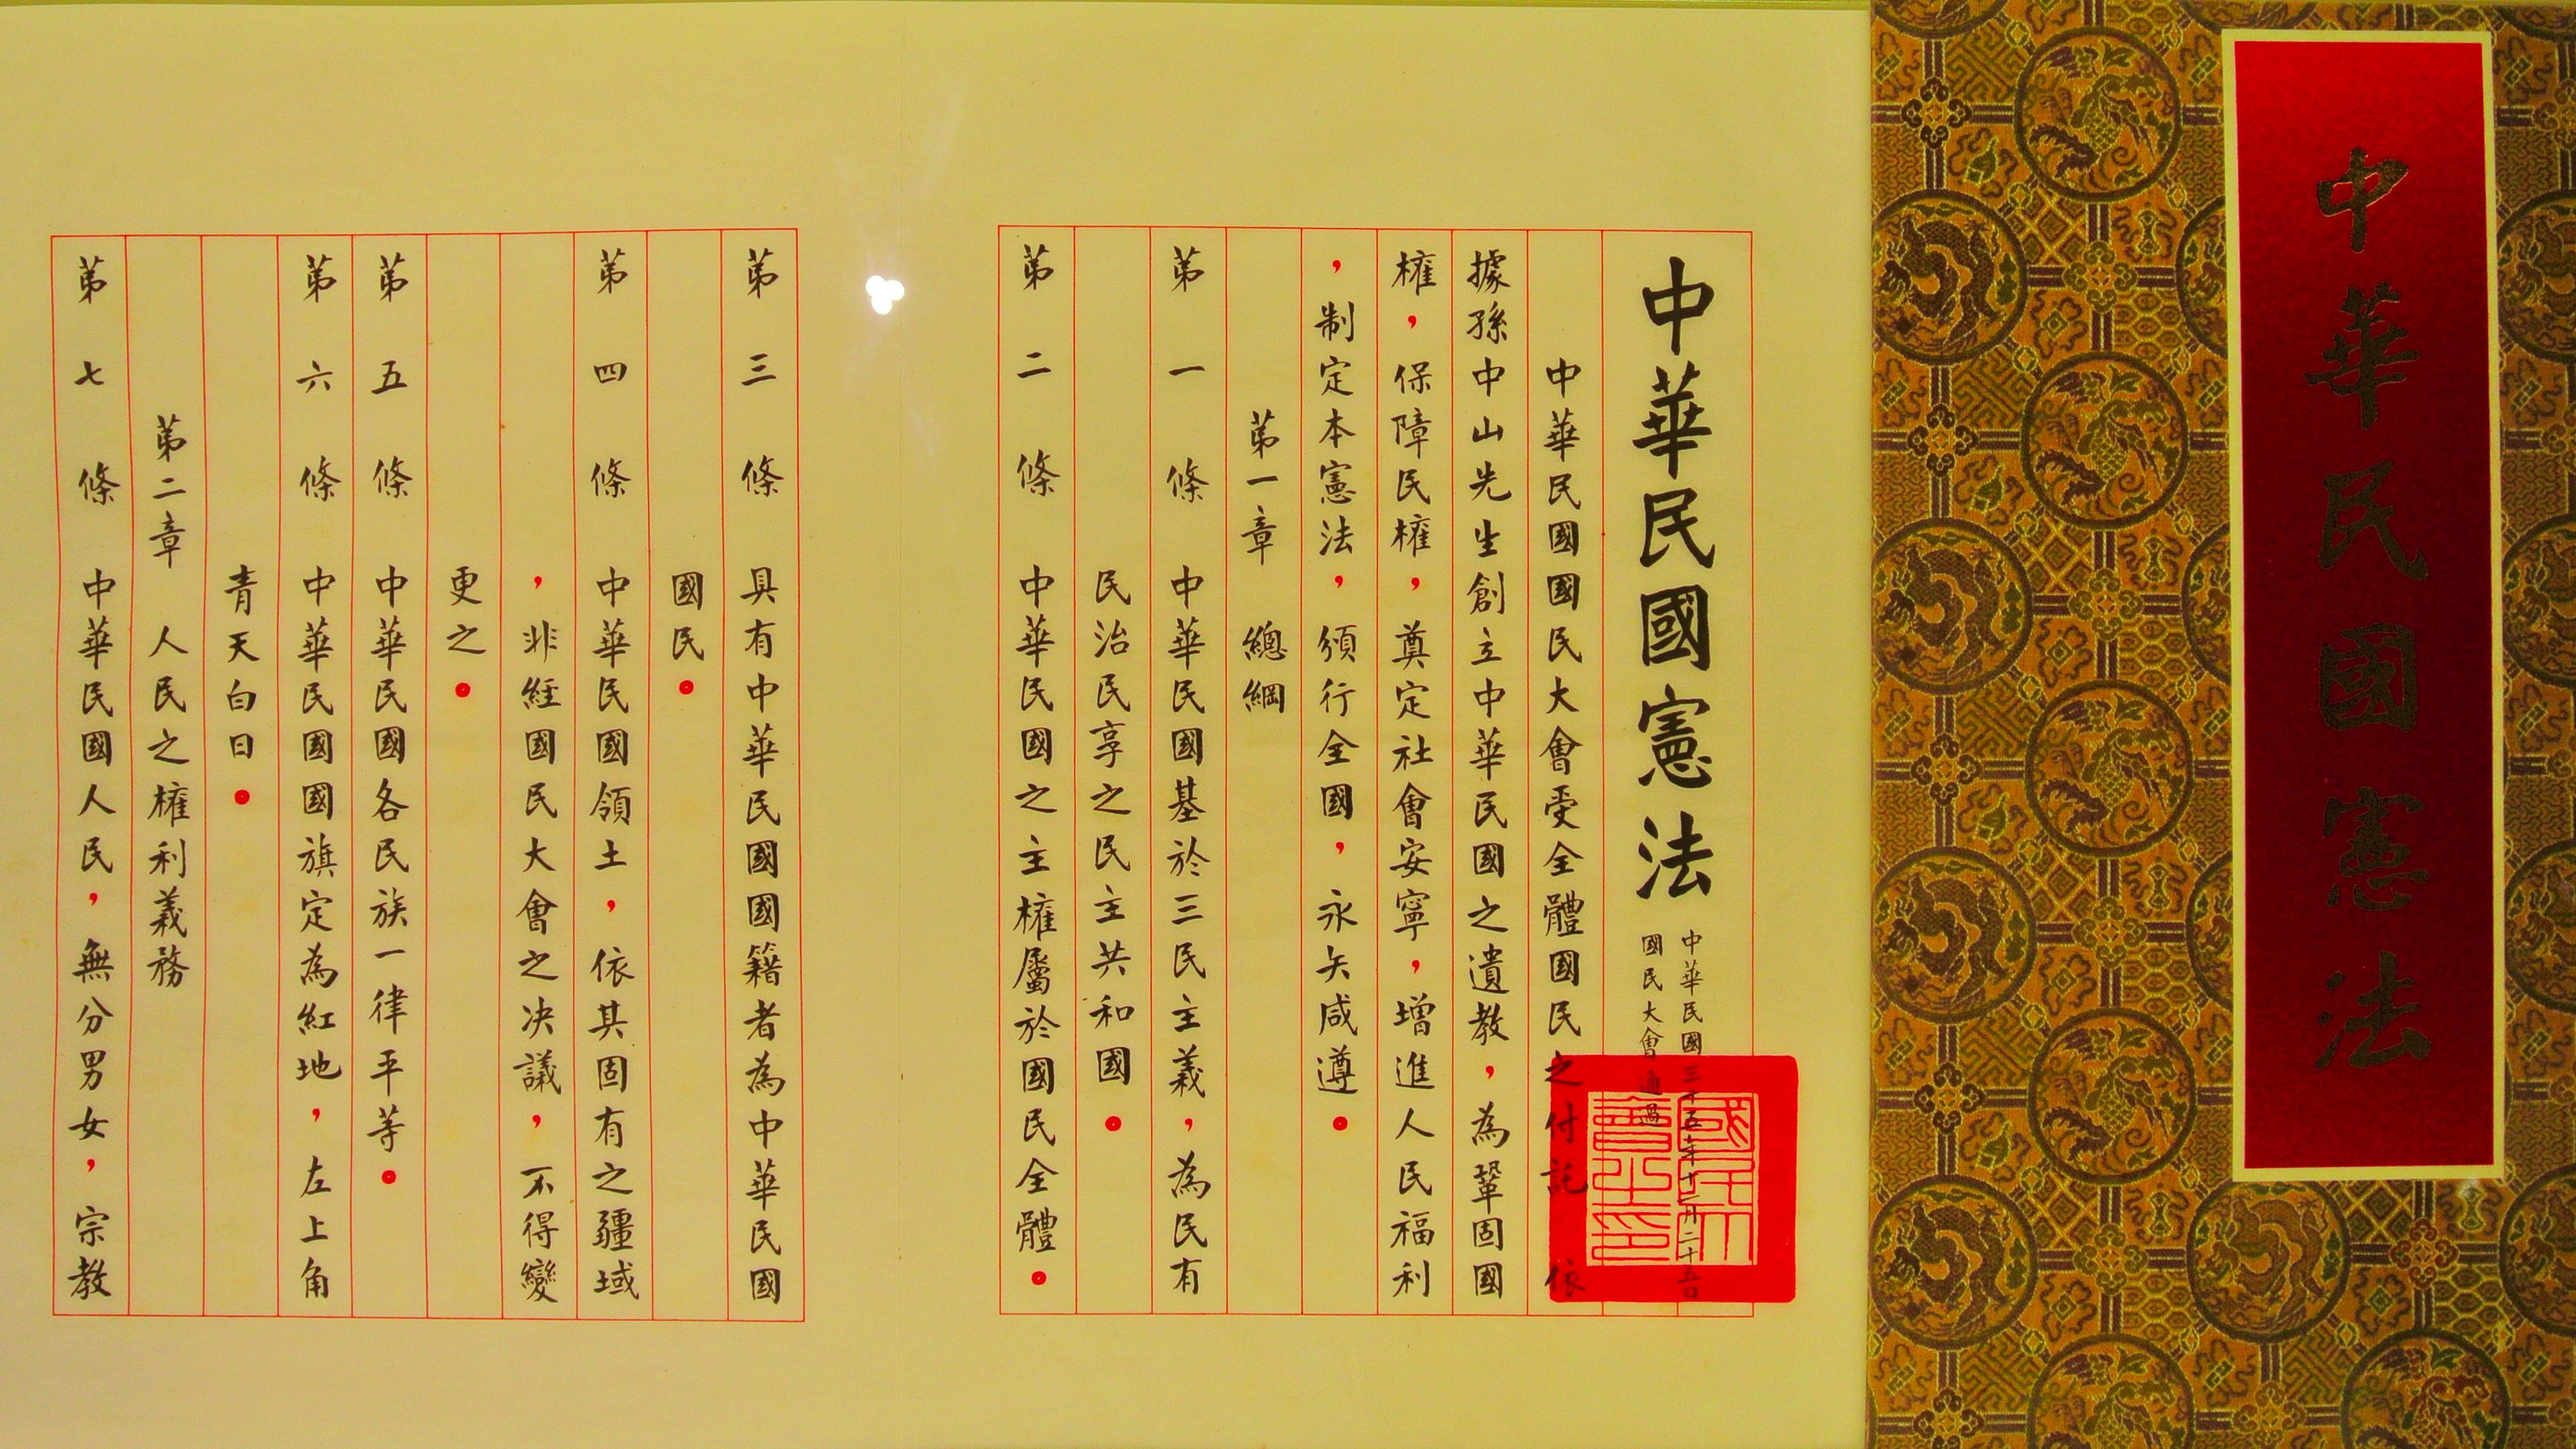 中華民國憲法
中華民國憲法
中華民國三十五年十二月二十五日
國民大會通過
中華民國國民大會受全體國民之付託 依
據孫中山先生創立中華民國之遺教,為鞏固國
權,保障民權,奠定社會安寧,增進人民福利
,制定本憲法,頒行全國,永矢咸遵。
第一章 總綱
第一條 中華民國基於三民主義,為民有
民治民享之民主共和國。
第二條 中華民國之主權屬於國民全體。
第三條 具有中華民國國籍者為中華民國
國民。
第四條 中華民國領土,依其固有之疆域
,非經國民大會之決議,不得變
更之。
第五條 中華民國各民族一律平等。
第六條 中華民國國旗定為紅地,左上角
青天白日。
第二章 人民之權利義務
第七條 中華民國人民,無分男女,宗教
國民大
會之印